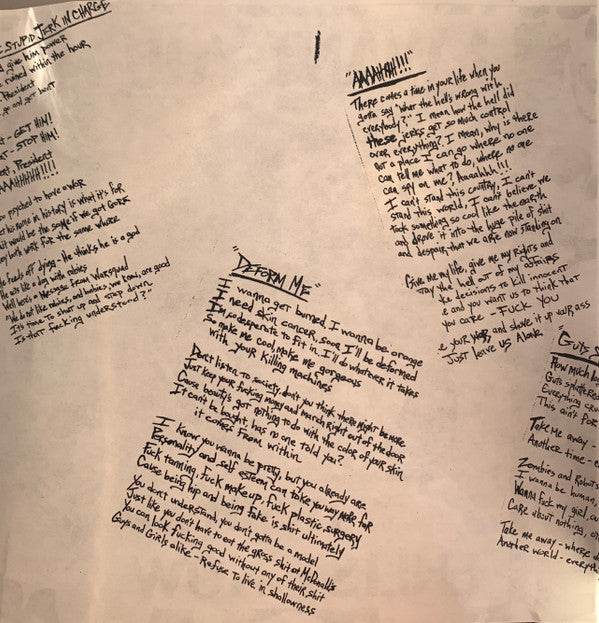 STUPID JERK IN CHARGE
give him power
ruined within the hour
President
go and get bent
- GET HIM!
- STOP HIM!
President
AAAHHHHH!!!!
psyched to have a war
his name in history is what it's for
it would be the same if we got Gore
They both work for the same whore
heads off dying - he thinks he is a god
like a dog with rabies
Well here's a message from Warsquad
We do not like babies, and babies we know, are good
It's time to shut up and step down
Is that fucking understood?"
"AAAAHHH!!!"
There comes a time in your life when you
gotta say "what the hell's wrong with
everybody?" I mean how the hell did
these jerks get so much control
over everything? I mean, why is there
not a place I can go where no one
can tell me what to do, where no one
can spy on me? Aaaahhh!!!
I can't stand this country, I can't
stand this world, I can't believe we
Took something so cool like the earth
and drove it into the huge pile of shit
and despair that we are now standing on
Give me my life, give me my rights and
stay the hell out of my affairs
decisions to kill innocent
and you want us to think that
you care - FUCK YOU
your war, and shove it up your ass
Just leave us Alone
"DEFORM ME"
I wanna get burned, I wanna be orange
I need skin cancer, soon I'll be deformed
I'm so desperate to fit in, I'll do whatever it takes
To make me cool, make me gorgeous
with your killing machines
Don't listen to society, don't you think there might be more
Just keep your fucking money and march right out of the door
Cause beauty's got nothing to do with the color of your skin
It can't be bought, has no one told you?
it comes from within
I know you wanna be pretty, but you already are
Personality and self esteem can take you way more far
Fuck tanning, fuck makeup, fuck plastic surgery
Cause being hip and being fake is shit ultimately
You don't understand, you don't gotta be a model
Just like you don't have to eat the gross shit at McDonalds
You can look fucking good without any of their shit
Guys and Girls alike - Refuse To live in shallowness
"Guts
How much
Guts splattered
Everything
This ain't for
Take me away -
Another time -
Zombies and Robots
I wanna be human,
Wanna fuck my girl,
Care about nothing,
Take me away - where
Another world - everyth